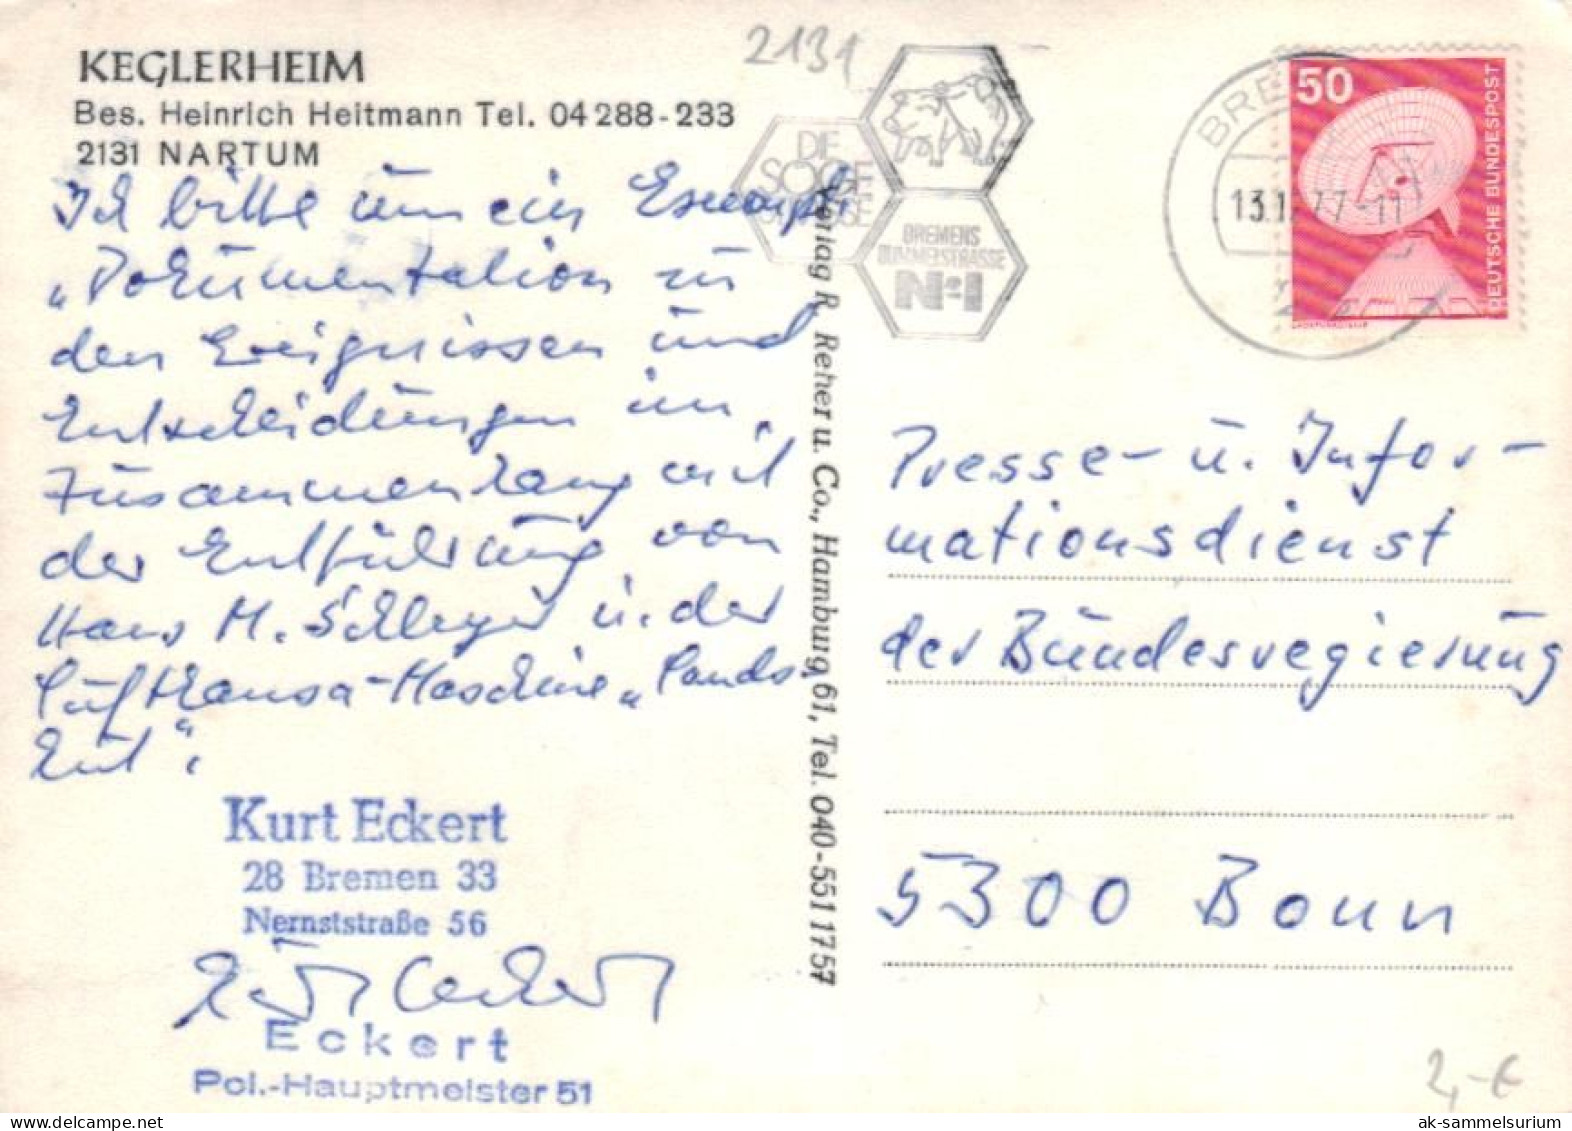 KEGLERHEIM
Bes. Heinrich Heitmann Tel. 04288-233
2131 NARTUM
Ich bitte um ein Exempl.
„Dokumentation zu
den Ereignissen und
Entscheidungen im
Zusammenhang mit
der Entführung von
Hans M. Schleyer u. der
Lufthansa-Maschine „Lands-
hut“.
Kurt Eckert
28 Bremen 33
Nernststraße 56
Kurt Eckert
Eckert
Pol.-Hauptmeister 51
Verlag R. Reher u. Co., Hamburg 61, Tel. 040-5511757
2131
DIE
SÖGE
BREMENS
BUMMELSTRASSE
No1
BRE
13.1 77-11
50
DEUTSCHE BUNDESPOST
Presse- u. Infor-
mationsdienst
der Bundesregierung
5300 Bonn
2,-€
ak-sammelsurium